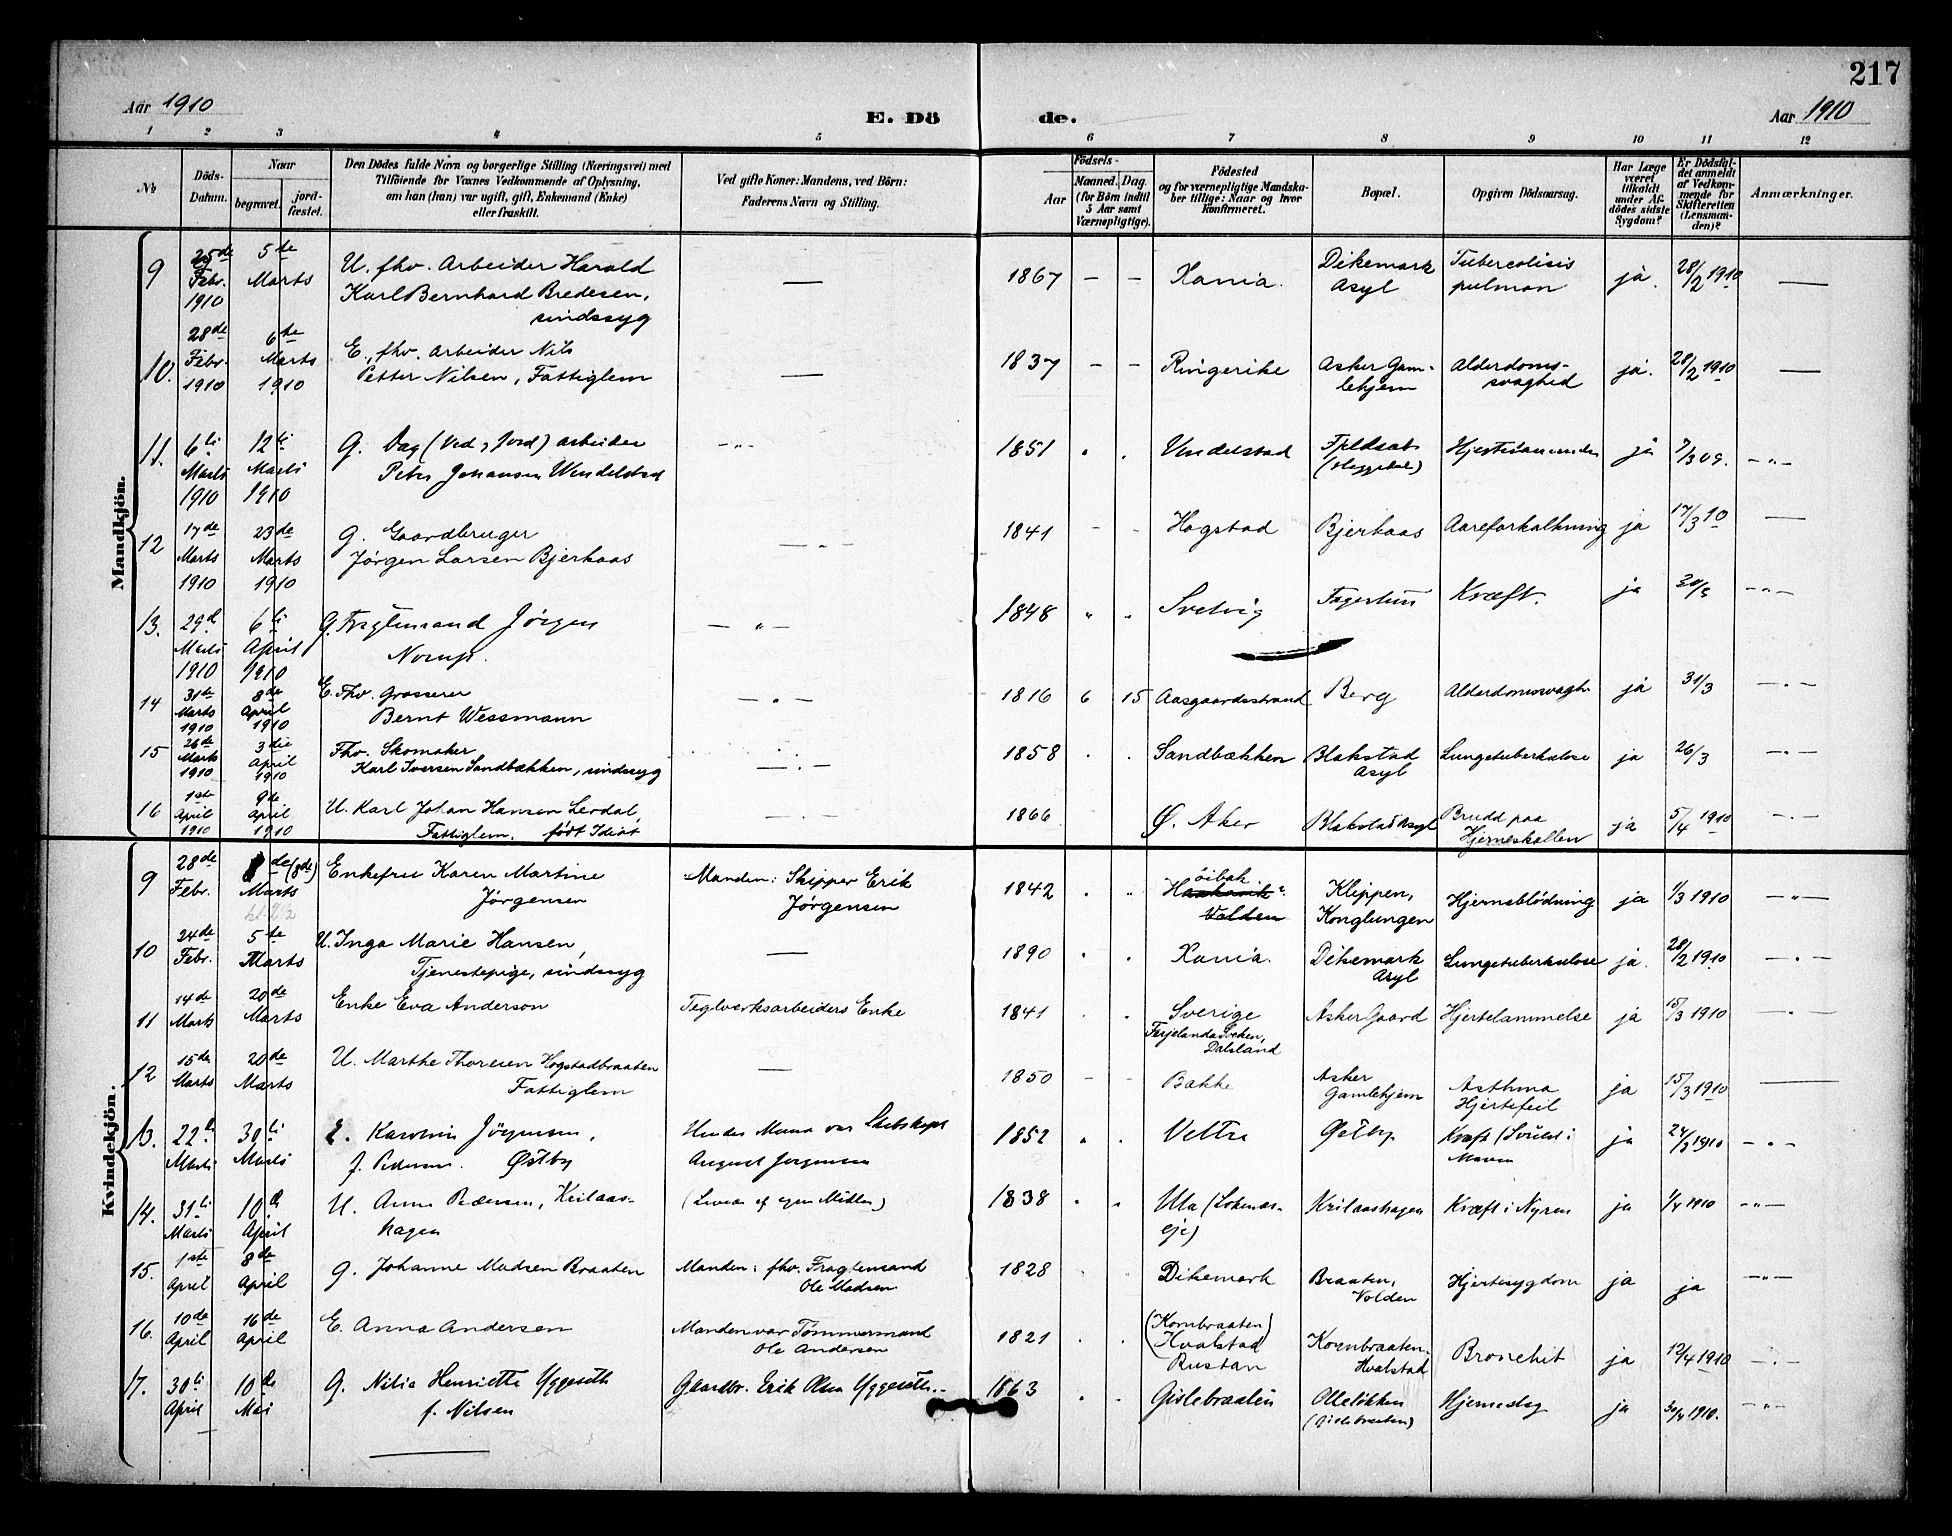 217
Aar 1910
E. Dö
de.
Aar 1910
1 2 3 4 5 6 7 8 9 10 11 12
No
Döds-
Datum.
Naar
begravet.
jord-
fæstet.
Den Dödes fulde Navn og borgerlige Stilling (Næringsvei) med
Tilföiende for Voxnes Vedkommende af Oplysning,
om han (hun) var ugift, gift, Enkemand (Enke)
eller fraskilt.
Ved gifte Koner: Mandens, ved Börn:
Faderens Navn og Stilling.
Födsels-
Aar
Maaned. Dag.
(for Börn indtil
5 Aar samt
Værnepligtige).
Födested
og for værnepligtige Mandska-
ber tillige: Naar og hvor
konfirmeret.
Bopæl.
Opgiven Dödsaarsag.
Har Læge
været
tilkaldt
under Af-
dödes sidste
Sygdom?
Er Dödsfal-
det anmeldt
af Vedkom-
mende for
Skifteretten
(Lensman-
den)?
Anmærkninger.
Mandkjön.
9
25de
Febr.
1910
5te
Marts
U. fhv. Arbeider Harald
Karl Bernhard Bredesen,
sindssyg
—
1867 – –
Xania.
Dikemark
Asyl
Tuberculisis
pulmon
ja.
28/2 1910
—
10.
28de
Febr.
1910
6te
Marts
1910
E., fhv. Arbeider Nils
Petter Nilsen, Fattiglem
—
1837 – –
Ringerike
Asker Gam-
lehjem
Alderdoms-
svaghed
ja.
28/2 1910
—
11.
6ti
Marts
1910
12ti
Marts
1910
G. Dag (Ved & Jord) arbeider
Peter Johansen Wendelstad
– " –
1851 " "
Vendelstad
(Heggedal)
ja
7/3 09.
– " –
12
17de
Marts
1910
23de
Marts
1910
G. Gaardbruger
Jørgen Larsen Bjerkaas
– " –
1841 – –
Hogstad
Bjerkaas
Aareforkalkning
ja
17/3 10
—
13.
29d
Marts
1910
6ti
April
1910
G. Fragtemand Jörgen
Norup.
– " –
1848 " "
Svelvig
Fagertun
Kræft.
ja
– " –
14
31te
Marts
1910
8de
April
1910
E. Fhv. Grosserer
Bernt Wessmann
– " –
1816 6 15
Aasgaardsstrand
Berg
Alderdomssvagh.
ja
31/3
– " –
15
26de
Marts
1910
3die
April
1910
Fhv. Skomaker
Karl Iversen Sandbækken, sindssyg
– . –
1858 " "
Sandbækken
Blakstad
Asyl
Lungetuberkulose
ja
26/3
– " –
16
1ste
April
1910
9de
April
1910
U. Karl Johan Hansen Lerdal,
Fattiglem. født Idiot
– . –
1866
Ø. Aker
Blakstad Asyl
Brudd paa
Hjerneskallen
ja
5/4 1910
– . –
Kvindekjön.
9
28de
Febr.
8de (8de)
Marts
Enkefru Karen Martine
Jørgensen
Manden: Skipper Erik
Jørgensen
1842 " "
Valden
Klippen,
Konglungen
Hjerneblödning
ja
1/3 1910
– " –
10
24de
Febr.
5te
Marts
U. Inga Marie Hansen,
Tjenestepige, sindssyg
—
1890 " "
Xania.
Dikemark
Asyl
Lungetuberkulose
ja.
28/2 1910
– " –
11
14de
Marts
20de
Marts
Enke Eva Anderson
Teglverksarbeiders Enke
1841 " "
Sverige
Dalsland
Asker Gaard
Hjertelammelse
ja
15/3 1910
– " –
12
15de
Marts
20de
Marts
U. Marthe Thoresen Hogstadbraaten
Fattiglem
—
1850 – –
Bakke
Asker
Gamlehjem
Asthma
Hjertefeil
ja
15/3 1910
—
13.
22ti
Marts
30ti
Marts
E. Karoline Jörgensen,
f. Pedersen. Østby
Hendes Mand var Skibskapt
August Jørgensen
1852 " "
Veltre
Østby
Kræft (Svulst i
Maven
ja
24/3 1910
– " –
14.
31ti
Marts
10d
April
U. Anne Pedersen, Kridaas-
hagen
(Levede af egne Midler)
1838 " "
eje)
Kræft i Nyren
ja
1/4 1910
– " –
15.
1ste
April
8de
April
G. Johanne Madsen Braaten
Manden: fhv. Fragtemand
Ole Madsen
1828 " "
Dikemark
Braaten,
Volden
Hjertesygdom
ja
ja
– " –
16.
10de
April
16de
April
E. Anna Andersen
Manden var Tømmermand
Ole Andersen
1821 " "
(Kornbraaten)
Hvalstad
Rustan
Kornbraaten.
Hvalstad
Bronchit
ja
12/4 1910
– . –
17.
30ti
April
10de
Mai
G. Nilia Henriette Yggeseth
f. Nilsen
Gaardbr. Erik Olsen Yggeseth.
1863 " "
Gislebraaten
Olleløkken
(Gislebraaten)
Hjerneslag
ja
30/4 1910.
– " –